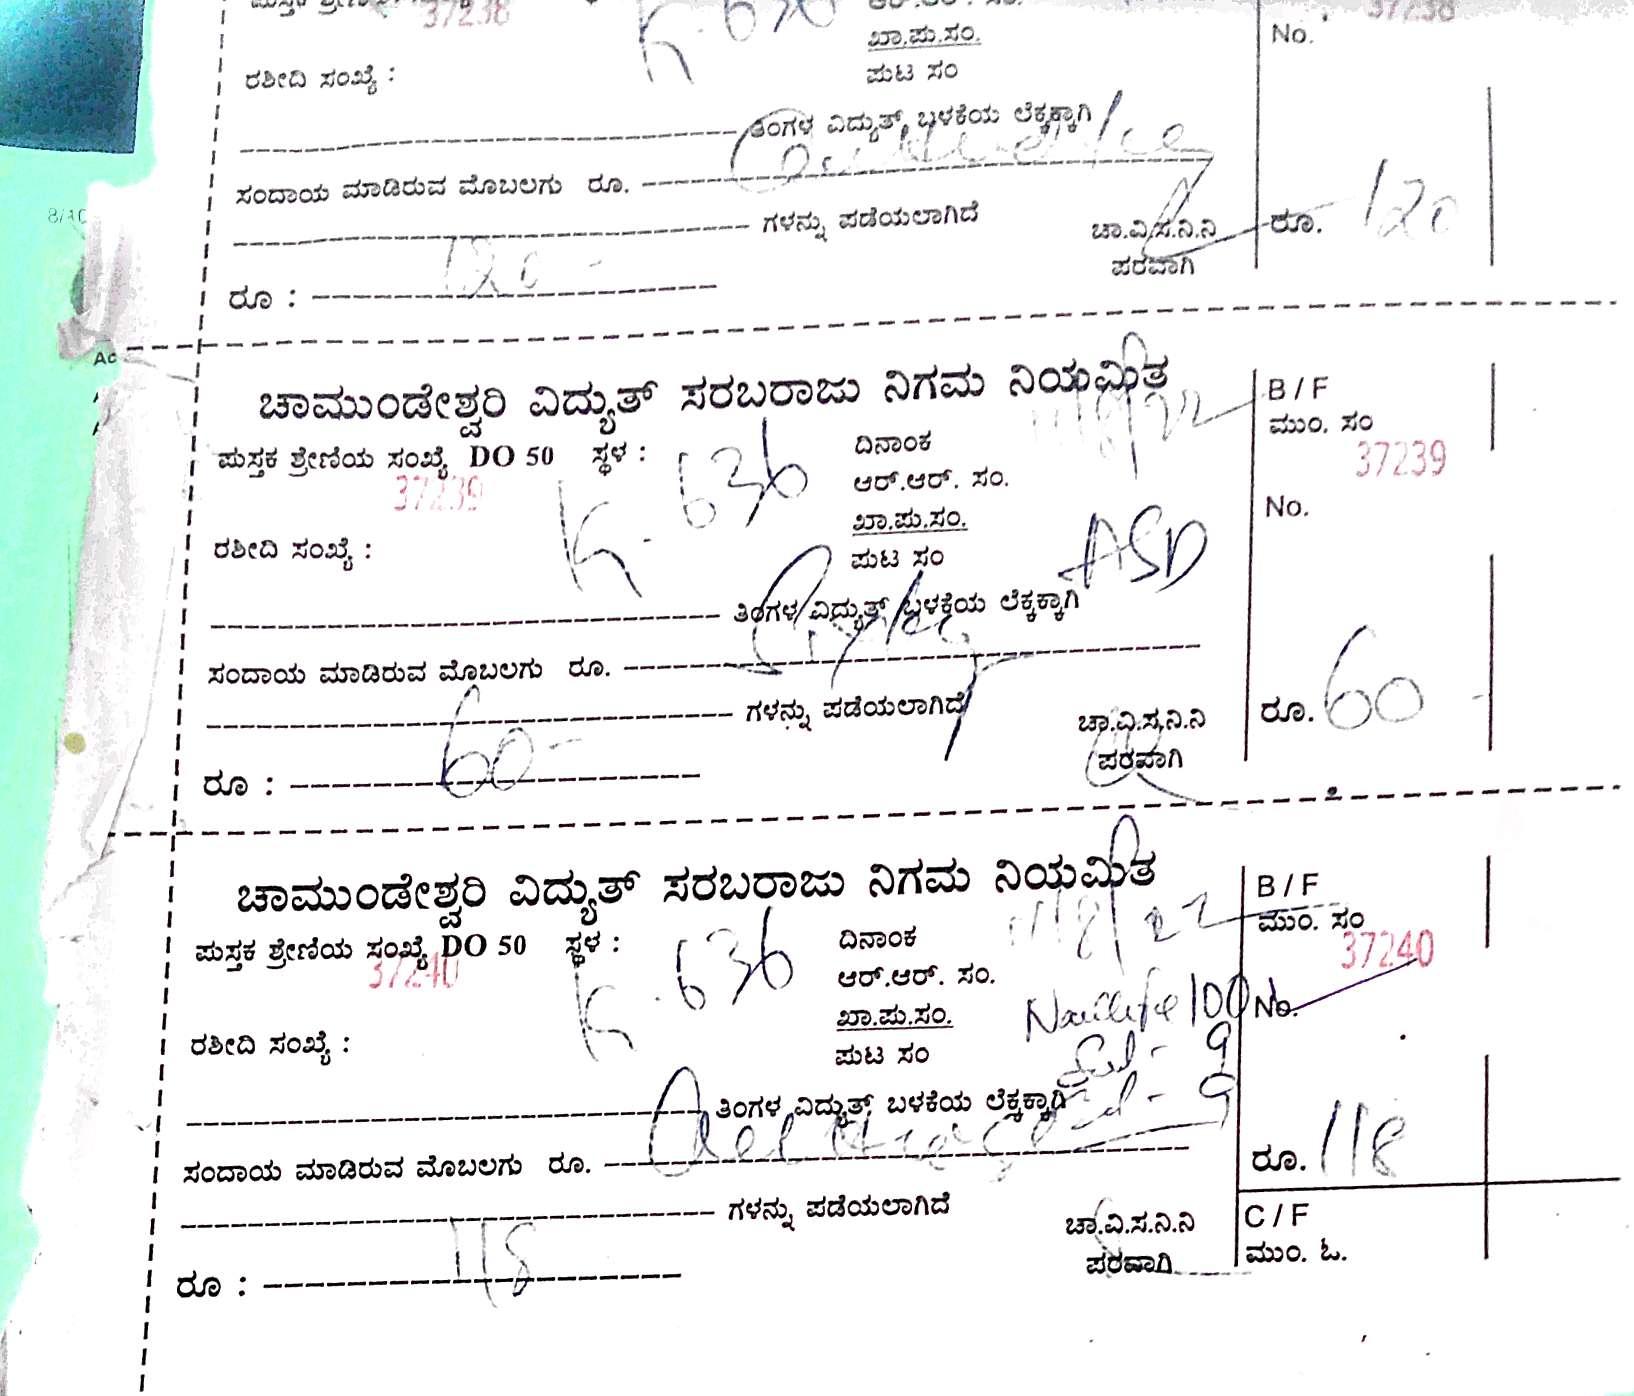 37238
37238
K. 636
ಖಾ.ಪು.ಸಂ.
No.
ರಶೀದಿ ಸಂಖ್ಯೆ :
ಪುಟ ಸಂ
ತಿಂಗಳ ವಿದ್ಯುತ್ ಬಳಕೆಯ ಲೆಕ್ಕಕ್ಕಾಗಿ
ಸಂದಾಯ ಮಾಡಿರುವ ಮೊಬಲಗು ರೂ.
ಗಳನ್ನು ಪಡೆಯಲಾಗಿದೆ
ಚಾ.ವಿ.ಸ.ನಿ.ನಿ
ರೂ. 120
ಪರವಾಗಿ
ರೂ : 120 -
ಚಾಮುಂಡೇಶ್ವರಿ ವಿದ್ಯುತ್ ಸರಬರಾಜು ನಿಗಮ ನಿಯಮಿತ
B / F
ಮುಂ. ಸಂ
ಪುಸ್ತಕ ಶ್ರೇಣಿಯ ಸಂಖ್ಯೆ DO 50 ಸ್ಥಳ :
ದಿನಾಂಕ 11/8/22
37239
37239
K. 636
ಆರ್.ಆರ್. ಸಂ.
No.
ಖಾ.ಪು.ಸಂ.
ರಶೀದಿ ಸಂಖ್ಯೆ :
ಪುಟ ಸಂ
ASD
ತಿಂಗಳ ವಿದ್ಯುತ್ ಬಳಕೆಯ ಲೆಕ್ಕಕ್ಕಾಗಿ
ಸಂದಾಯ ಮಾಡಿರುವ ಮೊಬಲಗು ರೂ.
ಗಳನ್ನು ಪಡೆಯಲಾಗಿದೆ
ಚಾ.ವಿ.ಸ.ನಿ.ನಿ
ರೂ. 60
ಪರವಾಗಿ
ರೂ : 60 -
ಚಾಮುಂಡೇಶ್ವರಿ ವಿದ್ಯುತ್ ಸರಬರಾಜು ನಿಗಮ ನಿಯಮಿತ
B / F
ಮುಂ. ಸಂ
ಪುಸ್ತಕ ಶ್ರೇಣಿಯ ಸಂಖ್ಯೆ DO 50 ಸ್ಥಳ :
ದಿನಾಂಕ 11/8/22
37240
37240
K. 636
ಆರ್.ಆರ್. ಸಂ.
ಖಾ.ಪು.ಸಂ.
100
No.
ರಶೀದಿ ಸಂಖ್ಯೆ :
ಪುಟ ಸಂ
- 9
ತಿಂಗಳ ವಿದ್ಯುತ್ ಬಳಕೆಯ ಲೆಕ್ಕಕ್ಕಾಗಿ
- 9
ಸಂದಾಯ ಮಾಡಿರುವ ಮೊಬಲಗು ರೂ.
ರೂ. 118
ಗಳನ್ನು ಪಡೆಯಲಾಗಿದೆ
ಚಾ.ವಿ.ಸ.ನಿ.ನಿ
C / F
ಪರವಾಗಿ
ಮುಂ. ಓ.
ರೂ : 118